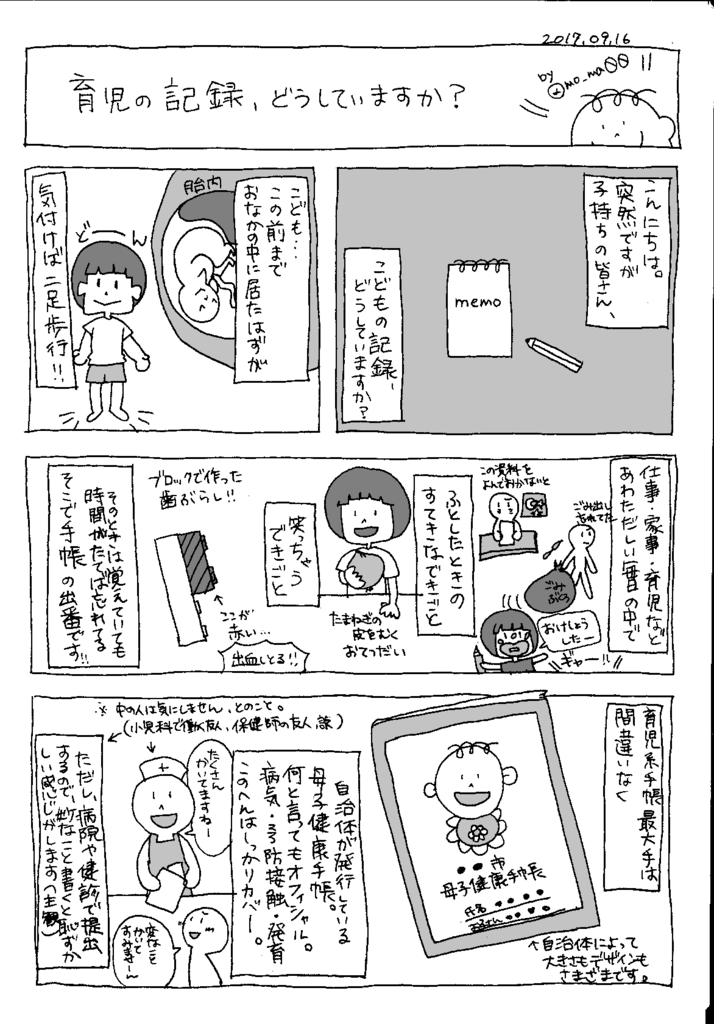 2017.09.16
育児の記録、どうしていますか?
by
mo_ma
こんにちは。
突然ですが
子持ちの皆さん、
memo
こどもの記録、
どうしていますか?
こども…
この前まで
おなかの中に居たはずが
胎内
どーん
気付けば二足歩行!!
仕事・家事・育児など
あわただしい毎日の中で
この資料を
よんでおかないと
ごみ出し
忘れてた
ごみ
ぶくろ
おけしょう
したー
ギャー!!
ふとしたときの
すてきなできごと
たまねぎの
皮をむく
おてつだい
笑っちゃう
できごと
ブロックで作った
歯ぶらし!!
ここが
赤い…
出血しとる!!
そのときは覚えていても
時間がたてば忘れてる
そこで手帳の出番です!!
育児系手帳最大手は
間違いなく
●●市
母子健康手帳
氏名
お子さん
↑自治体によって
大きさもデザインも
さまざまです。
自治体が発行している
母子健康手帳。
何と言ってもオフィシャル。
病気・予防接触・発育
このへんはしっかりカバー。
※中の人は気にしません、とのこと。
(小児科で働く友人、保健師の友人談)
たくさん
かいてますねー
変なこと
かいて
すみませーん
ただし、病院や健診で提出
するので、妙なこと書くと恥ずか
しい感じがします(主観)